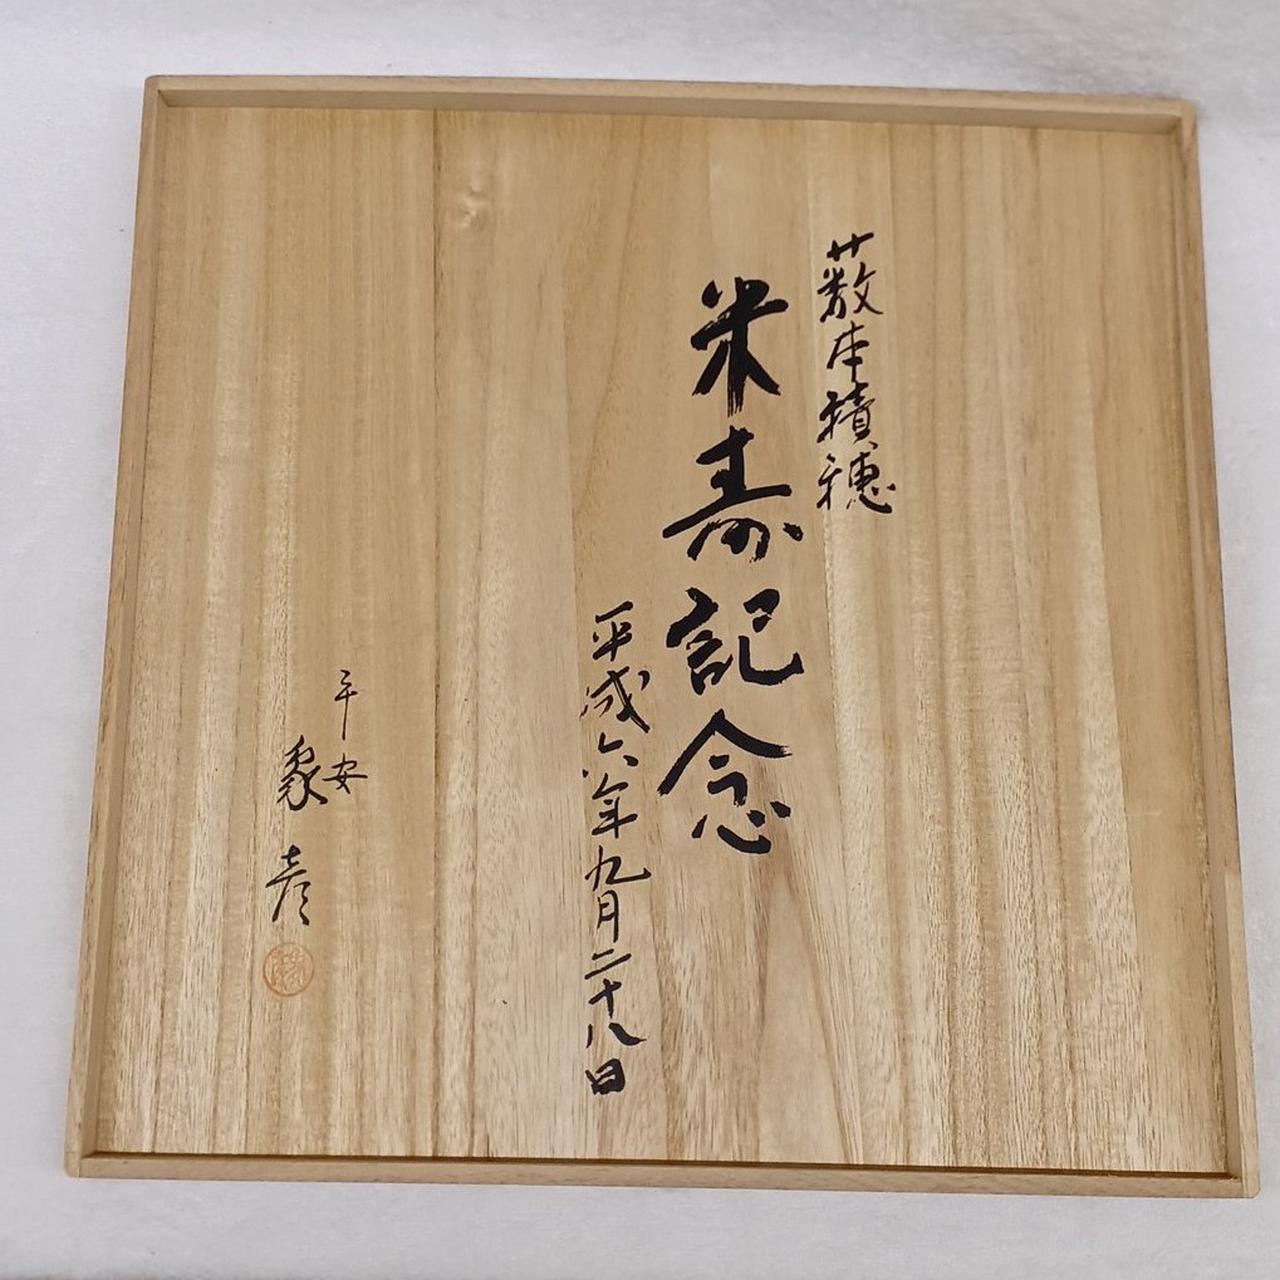 薮本積穂
米寿記念
平成六年九月二十八日
平安
象彦